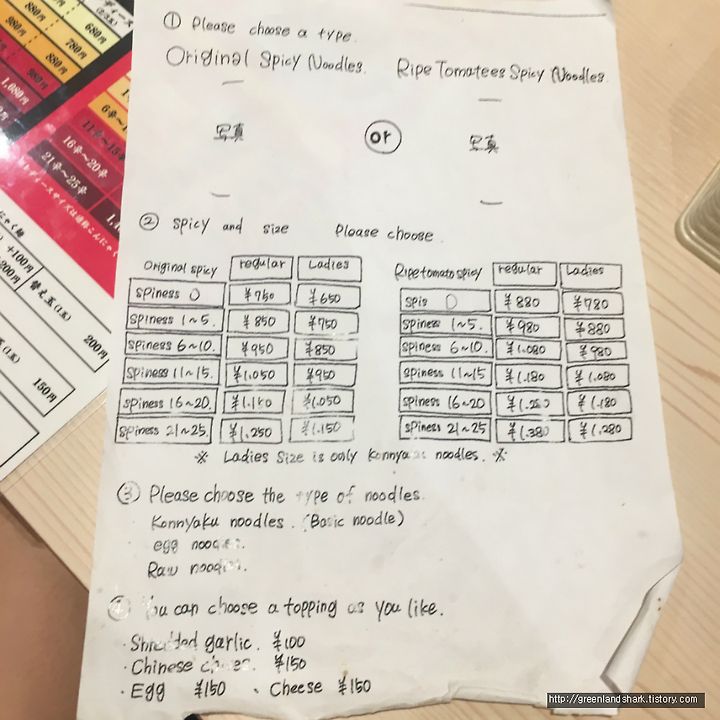 ① Please choose a type.
Original Spicy Noodles. Ripe Tomatees Spicy Noodles.
写真 or 写真
② spicy and size Please choose.
Original spicy regular Ladies
spiness 0 ¥750 ¥650
spiness 1~5. ¥850 ¥750
spiness 6~10. ¥950 ¥850
spiness 11~15. ¥1.050 ¥950
spiness 16~20. ¥1.150 ¥1.050
spiness 21~25. ¥1.250 ¥1.150
Ripe tomato spicy regular Ladies
spis 0 ¥880 ¥780
spiness 1~5. ¥980 ¥880
spiness 6~10. ¥1.080 ¥980
spiness 11~15 ¥1.180 ¥1.080
spiness 16~20 ¥1.280 ¥1.180
spiness 21~25 ¥1.380 ¥1.280
※ Ladies size is only noodles. ※
③ Please choose the type of noodles.
Konnyaku noodles. (Basic noodle)
egg
Raw
④ You can choose a topping as you like.
・Shredded garlic. ¥100
・Chinese ¥150
・Egg ¥150 ・Cheese ¥150
680円
780円
880円
880円
980円
980円
1,080円
16辛~20辛
21辛~25辛
+100円
200円
替え玉(1玉)
200円
150円
http://greenlandshark.tistory.com